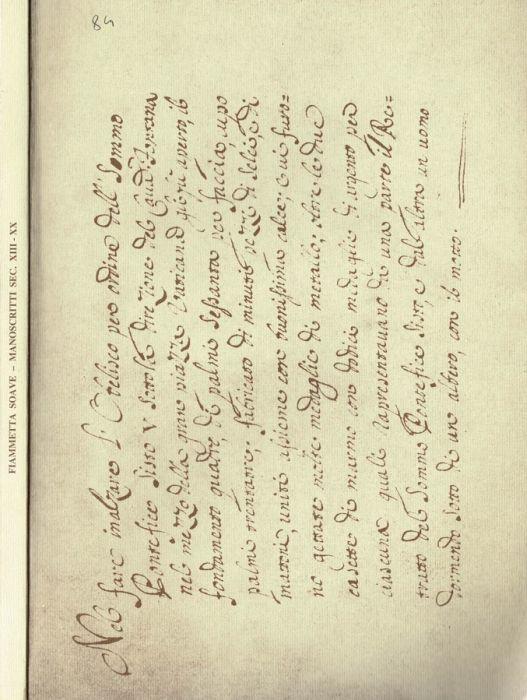 84
FIAMMETTA SOAVE – MANOSCRITTI SEC. XIII-XX
Nel fare inalzare l'Obelisco per ordine dell' Sommo
Pontefice Sisto V sotto la direzione del Cau: D: Fontana
nel mezzo della gran piazza Vaticana fu aperto, il
fondamento quadro, di palmi sessanta per faccia, cupo
palmi trentatre; fabricato di minuti pezzi di selci, e di
mattoni, uniti assieme con buonissima calce; e ui furo=
no gettate molte medaglie di metallo; oltre le due
casette di marmo con dodici medaglie di argento per
ciascuna quali rapresentauano da una parte il Re=
tratto del Sommo Pontefice Sisto, e dall'altra un uomo
dormendo sotto di un albero, con il motto.